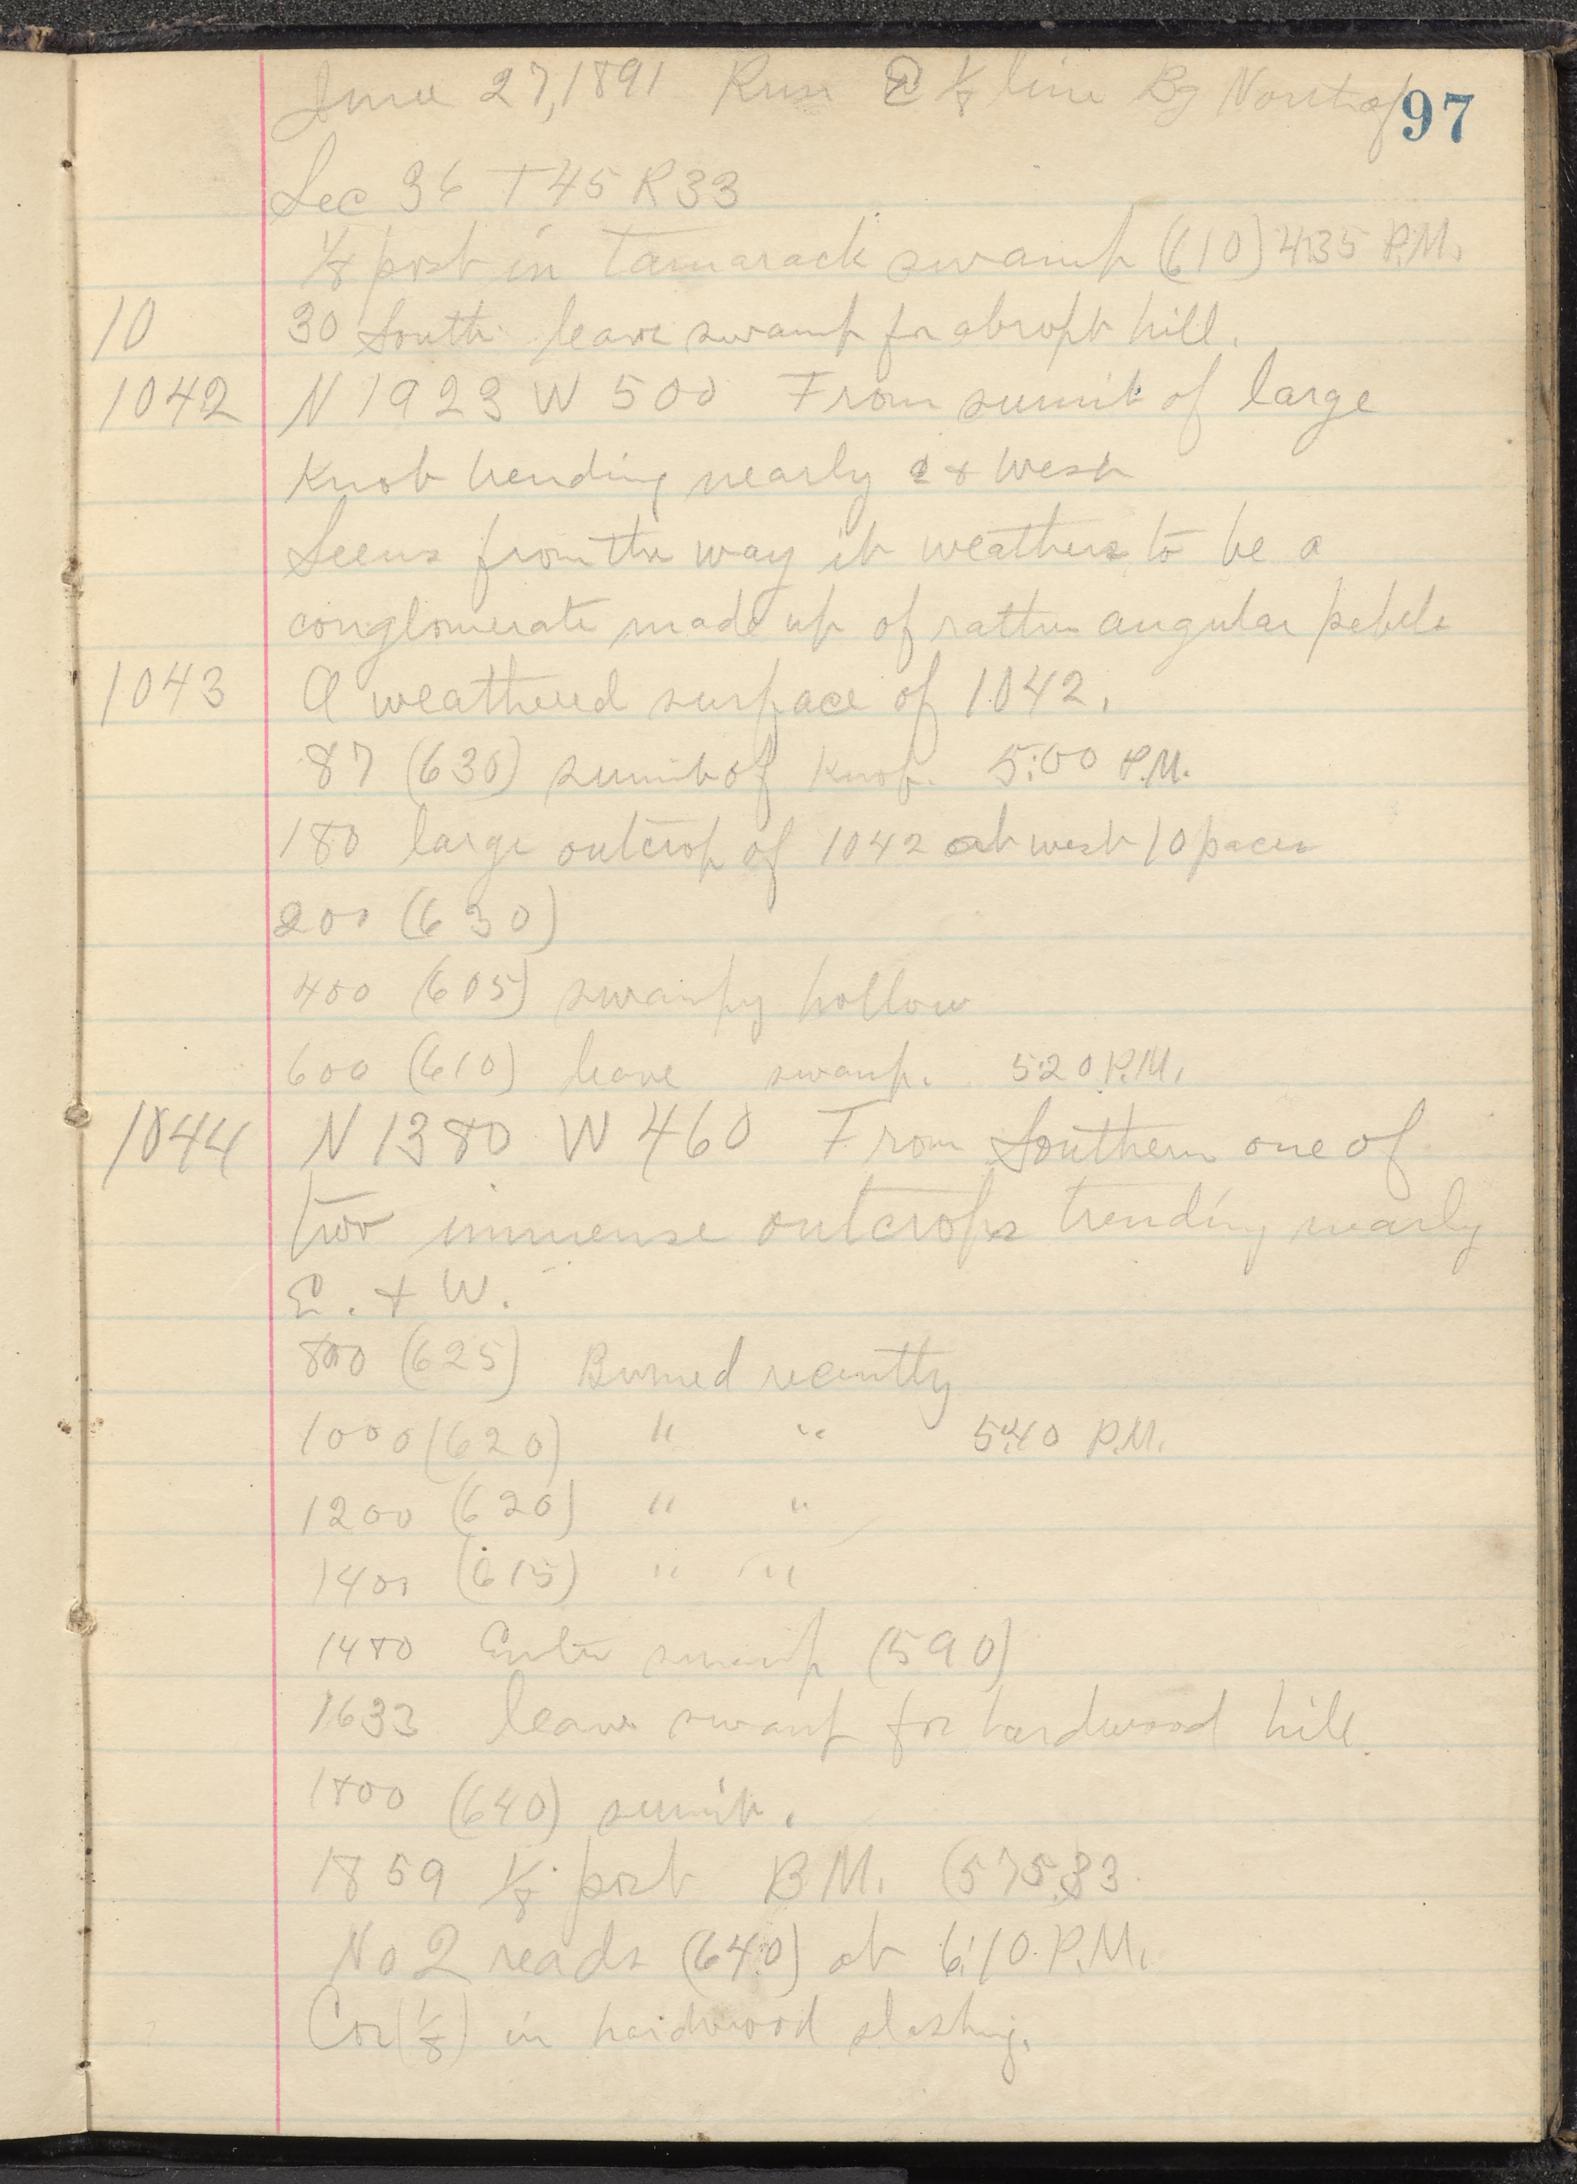 97
June 27, 1891 Run E 1/8 line Bg North of
Sec 36 T 45 R 33
1/8 post in tamarack swamp (610) 4:35 P.M.
10 30 South leave swamp for abropt hill.
1042 N 1923 W 500 From sumit of large
Knob trending nearly e + west
Seems from the way it weathers to be a
conglomerate made up of rather angular pebels
1043 A weathered surface of 1042.
87 (630) sumit of Knob. 5:00 P.M.
180 large outcrop of 1042 at west 10 paces
200 (630)
400 (605) swampy hollow
600 (610) leave swamp. 5:20 P.M.
1044 N 1380 W 460 From Southern one of
two immense outcrops trending nearly
E. + W.
800 (625) Burned recently
1000 (620) " " 5:40 P.M.
1200 (620) " "
1400 (615) " "
1480 Enter swamp (590)
1633 leave swamp for hardwood hill.
1800 (640) sumit.
1859 1/8 post B M. (575.33
No 2 reads (640) at 6:10 P.M.
Cor (1/8) in hardwood slashing.